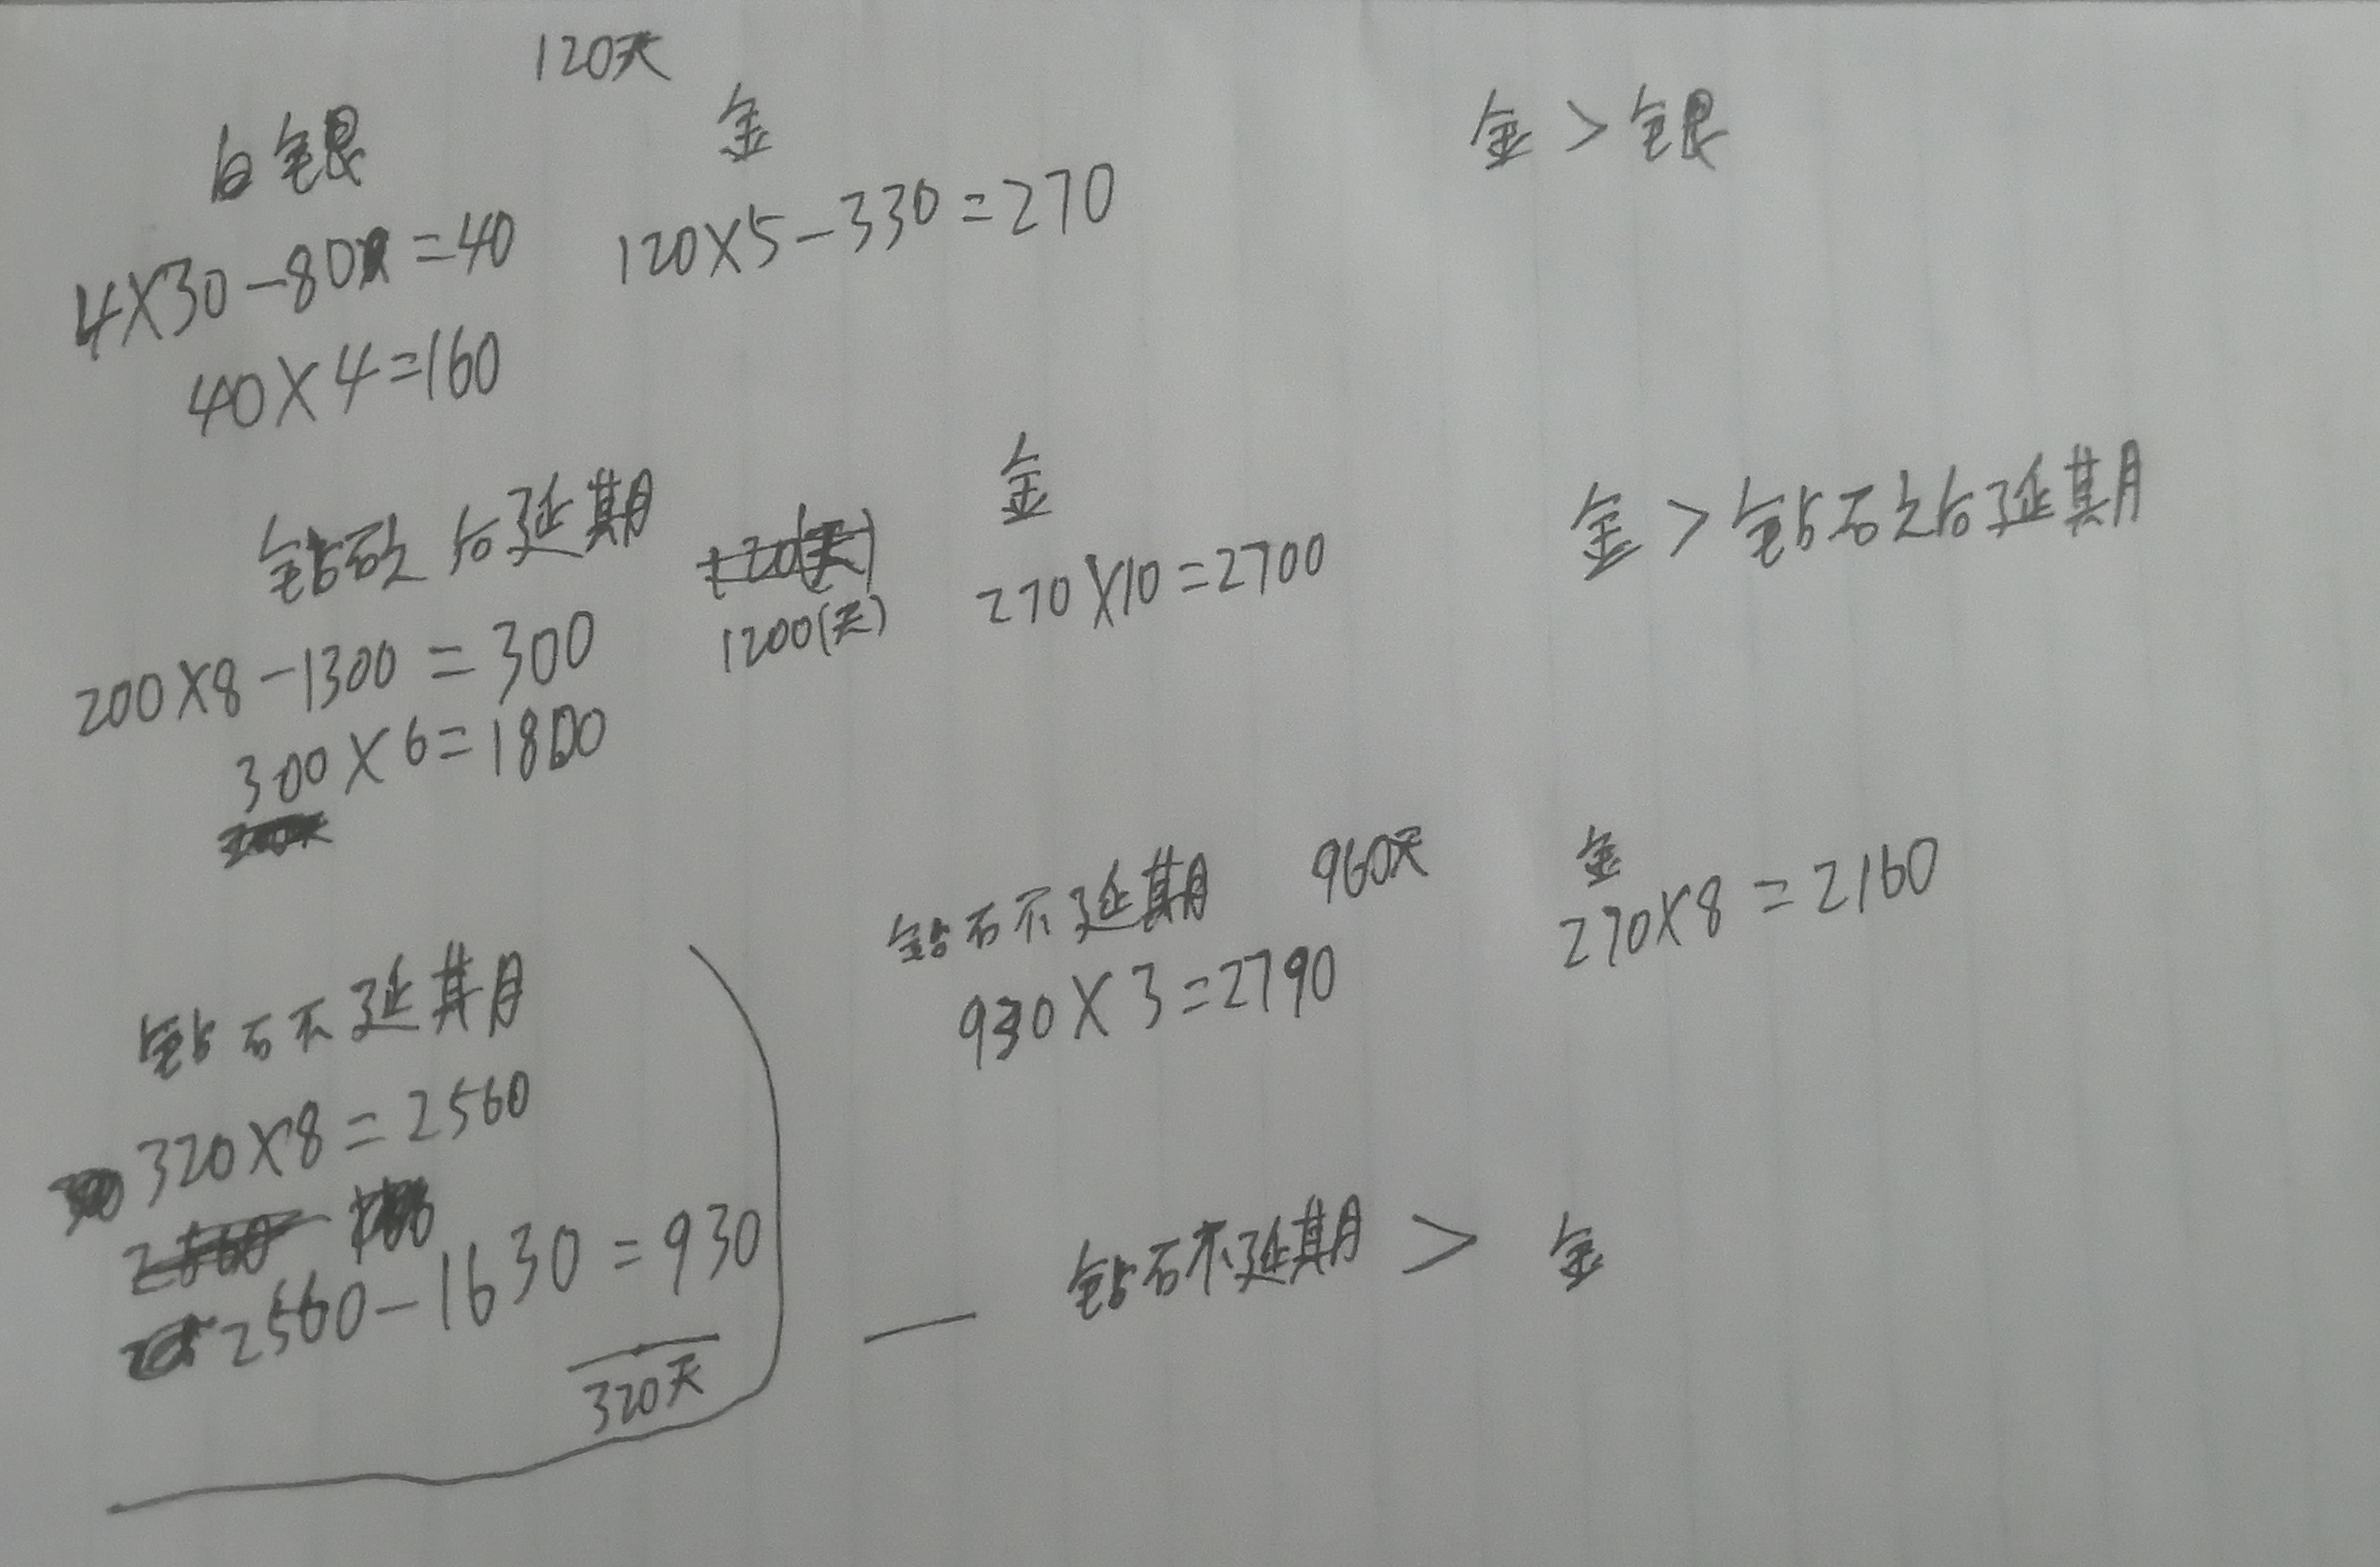 120天
白银 金 金>银
4×30-80=40 120×5-330=270
40×4=160
钻石之后延期 金 金>钻石之后延期
200×8-1300=300 1200(天) 270×10=2700
300×6=1800
钻石不延期 960天 金
930×3=2790 270×8=2160
钻石不延期
320×8=2560
2560-1630=930
320天
钻石不延期> 金